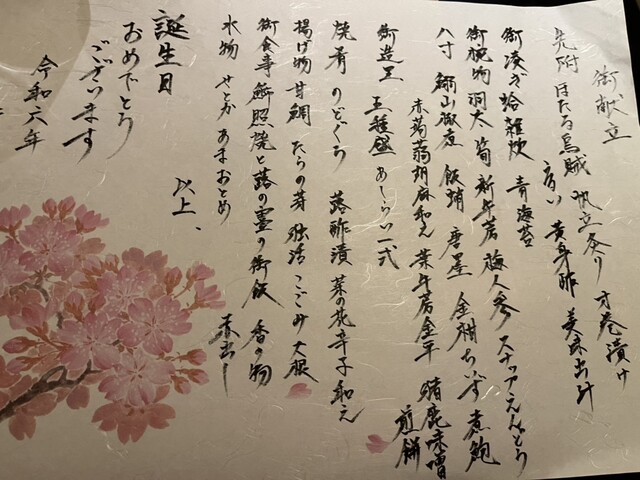 御献立
先附 ほたる烏賊 帆立炙り 才巻漬け
黄身酢 美味出汁
御凌ぎ 蛤雑炊 青海苔
御椀物 洞太 筍 新牛蒡 梅人参 スナップえんどう
八寸 鰯山椒煮 飯蛸 唐墨 金柑ちーず 煮鮑
赤蒟蒻胡麻和え 葉牛蒡金平 猪鹿味噌煎餅
御造里 五種盛 あしらい一式
焼肴 のどぐろ 蕗酢漬 菜の花辛子和え
揚げ物 甘鯛 たらの芽 独活 こごみ 大根
御食事 鱒照焼と蕗の薹の御飯 香の物 赤出し
水物 せとか あまおとめ
以上、
誕生日
おめでとう
ございます
令和六年